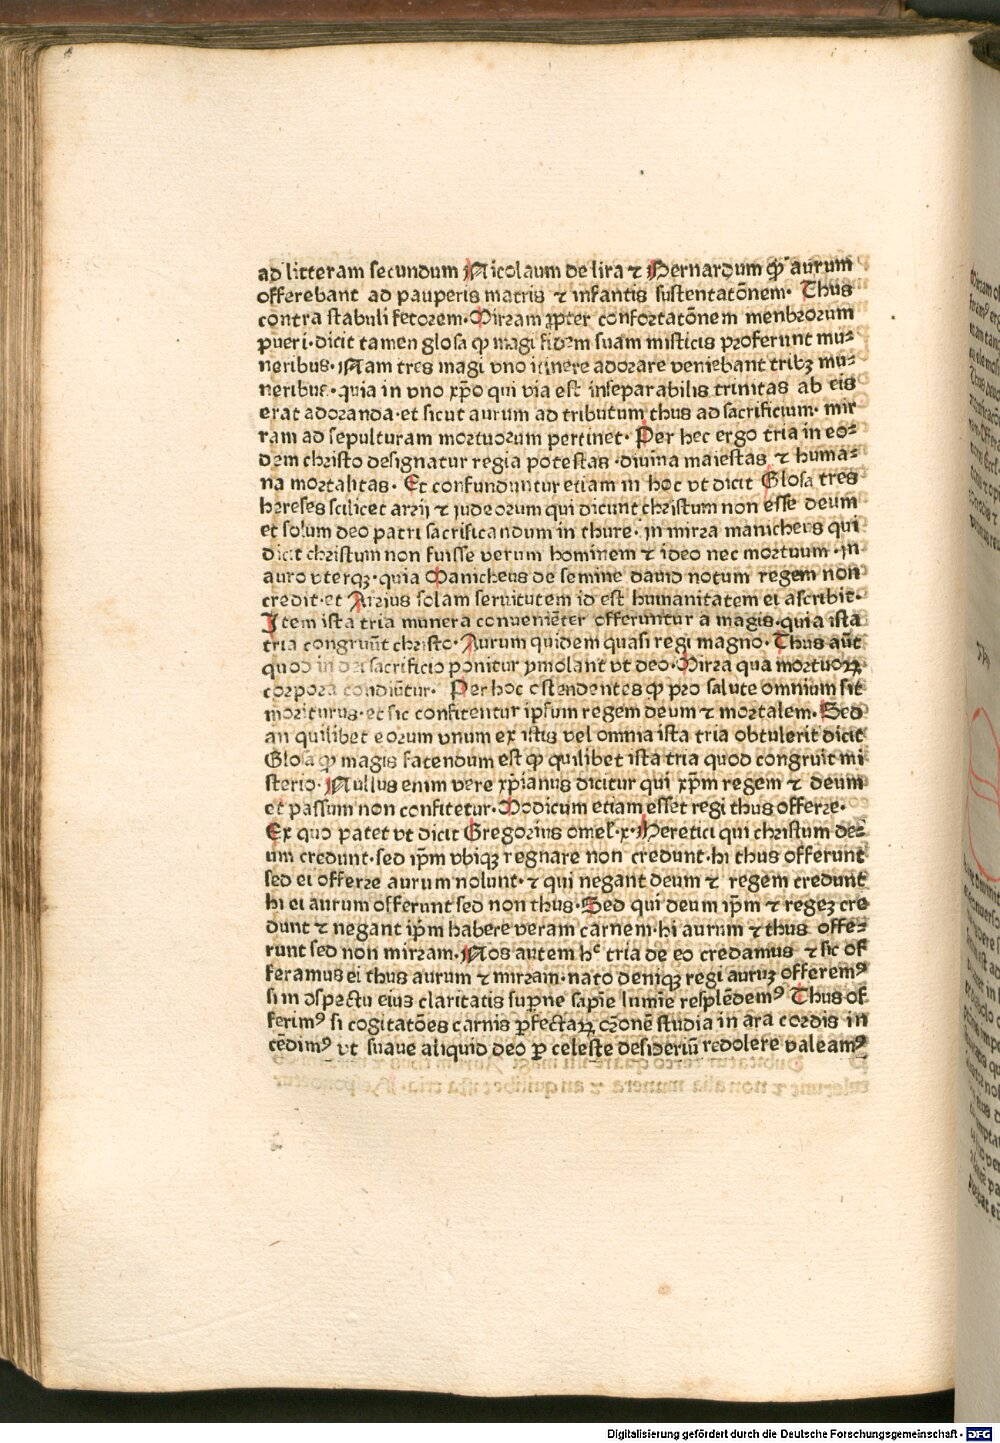 ad litteram secundum Nicolaum de lira ⁊ Bernardum ꝙ aurum
offerebant ad pauperis matris ⁊ infantis sustentatōnem· Thus
contra stabuli fetorem·Mirram ꝓpter confortatōnem menbrorum
pueri·dicit tamen glosa ꝙ magi fidem suam misticis proferunt mu⸗
neribus·Nam tres magi vno itinere adorare veniebant tribꝫ mu⸗
neribus·quia in vno xp̄o qui via est inseparabilis trinitas ab eis
erat adoranda·et sicut aurum ad tributum thus ad sacrificium· mir
ram ad sepulturam mortuorum pertinet· Per hec ergo tria in eo⸗
dem christo designatur regia potestas ·diuina maiestas ⁊ huma⸗
na mortalitas· Et confunduntur etiam in hoc vt dicit Glosa tres
hereses scilicet arrij ⁊ iudeorum qui dicunt christum non esse deum
et solum deo patri sacrificandum in thure· in mirra manicheus qui
dicit christum non fuisse verum hominem ⁊ ideo nec mortuum ·in
auro vterqꝫ·quia Manicheus de semine dauid notum regem non
credit·et Arrius solam seruitutem id est humanitatem ei ascribit·
Item ista tria munera conueniēter offeruntur a magis·quia ista
tria congruūt christo· Aurum quidem quasi regi magno· Thus aūt
quod in dei sacrificio ponitur ymolant vt deo·Mirra qua mortuoꝝ
corpora condiūtur· Per hoc ostendentes ꝙ pro salute omnium sit
moriturus·et sic confitentur ipsum regem deum ⁊ mortalem· Sed
an quilibet eorum vnum ex istis vel omnia ista tria obtulerit dicit
Glosa ꝙ magis fatendum est ꝙ quilibet ista tria quod congruit mi
sterio· Nullus enim vere xp̄ianus dicitur qui xp̄m regem ⁊ deum
et passum non confitetur·Modicum etiam esset regi thus offerre·
Ex quo patet vt dicit Gregorius omel̄·x·Heretici qui christum de⸗
um credunt·sed ip̄m vbiqꝫ regnare non credunt·hi thus offerunt
sed ei offerre aurum nolunt· ⁊ qui negant deum ⁊ regem credunt
hi ei aurum offerunt sed non thus·Sed qui deum ip̄m ⁊ regeꝫ cre
dunt ⁊ negant ip̄m habere veram carnem·hi aurum ⁊ thus offe⸗
runt sed non mirram·Nos autem hᶜ tria de eo credamus ⁊ sic of
feramus ei thus aurum ⁊ mirram·nato deniqꝫ regi auruꝫ offeremꝰ
si in ꝯspectu eius claritatis sup̄ne sapīe lumīe resplēdemꝰ Thus of
ferimꝰ si cogitatōes carnis ꝑfectaꝝ orōnē studia in ara cordis in
cēdimꝰ vt suaue aliquid deo ꝑ celeste desideriū redolere valeamꝰ
Digitalisierung gefördert durch die Deutsche Forschungsgemeinschaft · DFG